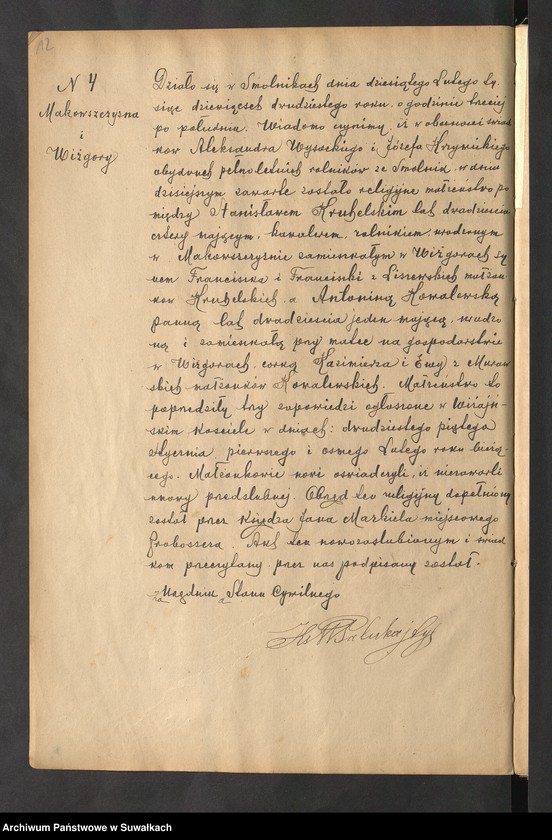 12
N 4
Makowszczyzna
i
Wiżgory
Działo się w Smolnikach dnia dziesiątego Lutego ty-
siąc dziewięcset drudziestego roku o godzinie trzeciej
po południu. Wiadomo czynimy, iż w obecności świad
ków Aleksandra Wysockiego i Józefa Krzywickiego
obydwuch pełnoletnich rolników ze Smolnik, w dniu
dzisiejszym zawarte zostało religijne małżeństwo po
między Stanisławem Krubelskim lat dwadzieścia
cztery mającym, kawalerem, rolnikiem, urodzonym
w Makowszczyznie zamieszkałym w Wiżgorach sy-
nem Franciszka i Franciszki z Liszewskich małżon
ków Krubelskich a Antoniną Kowalewską
panną lat dwadzieścia jeden mającą, urodzo
ną i zamieszkałą przy matce na gospodarstwie
w Wiżgorach, córką Kazimierza i Ewy z Muraw
skich małżonków Kowalewskich. Małżeństwo to
poprzedziły trzy zapowiedzi ogłoszone w Wiżajń-
skim Kościele w dniach: dwudziestego piątego
stycznia, pierwszego i osmego Lutego roku bieżą-
cego. Małżonkowie nowi oświadczyli, iż niezawarli
umowy przedślubnej. Obrzęd ten religijny dopełniony
został przez Księdza Jana miejscowego
Proboszcza. Akt ten nowozaślubionym i świad
kom przeczytany przez nas podpisany został.
Stanu Cywilnego